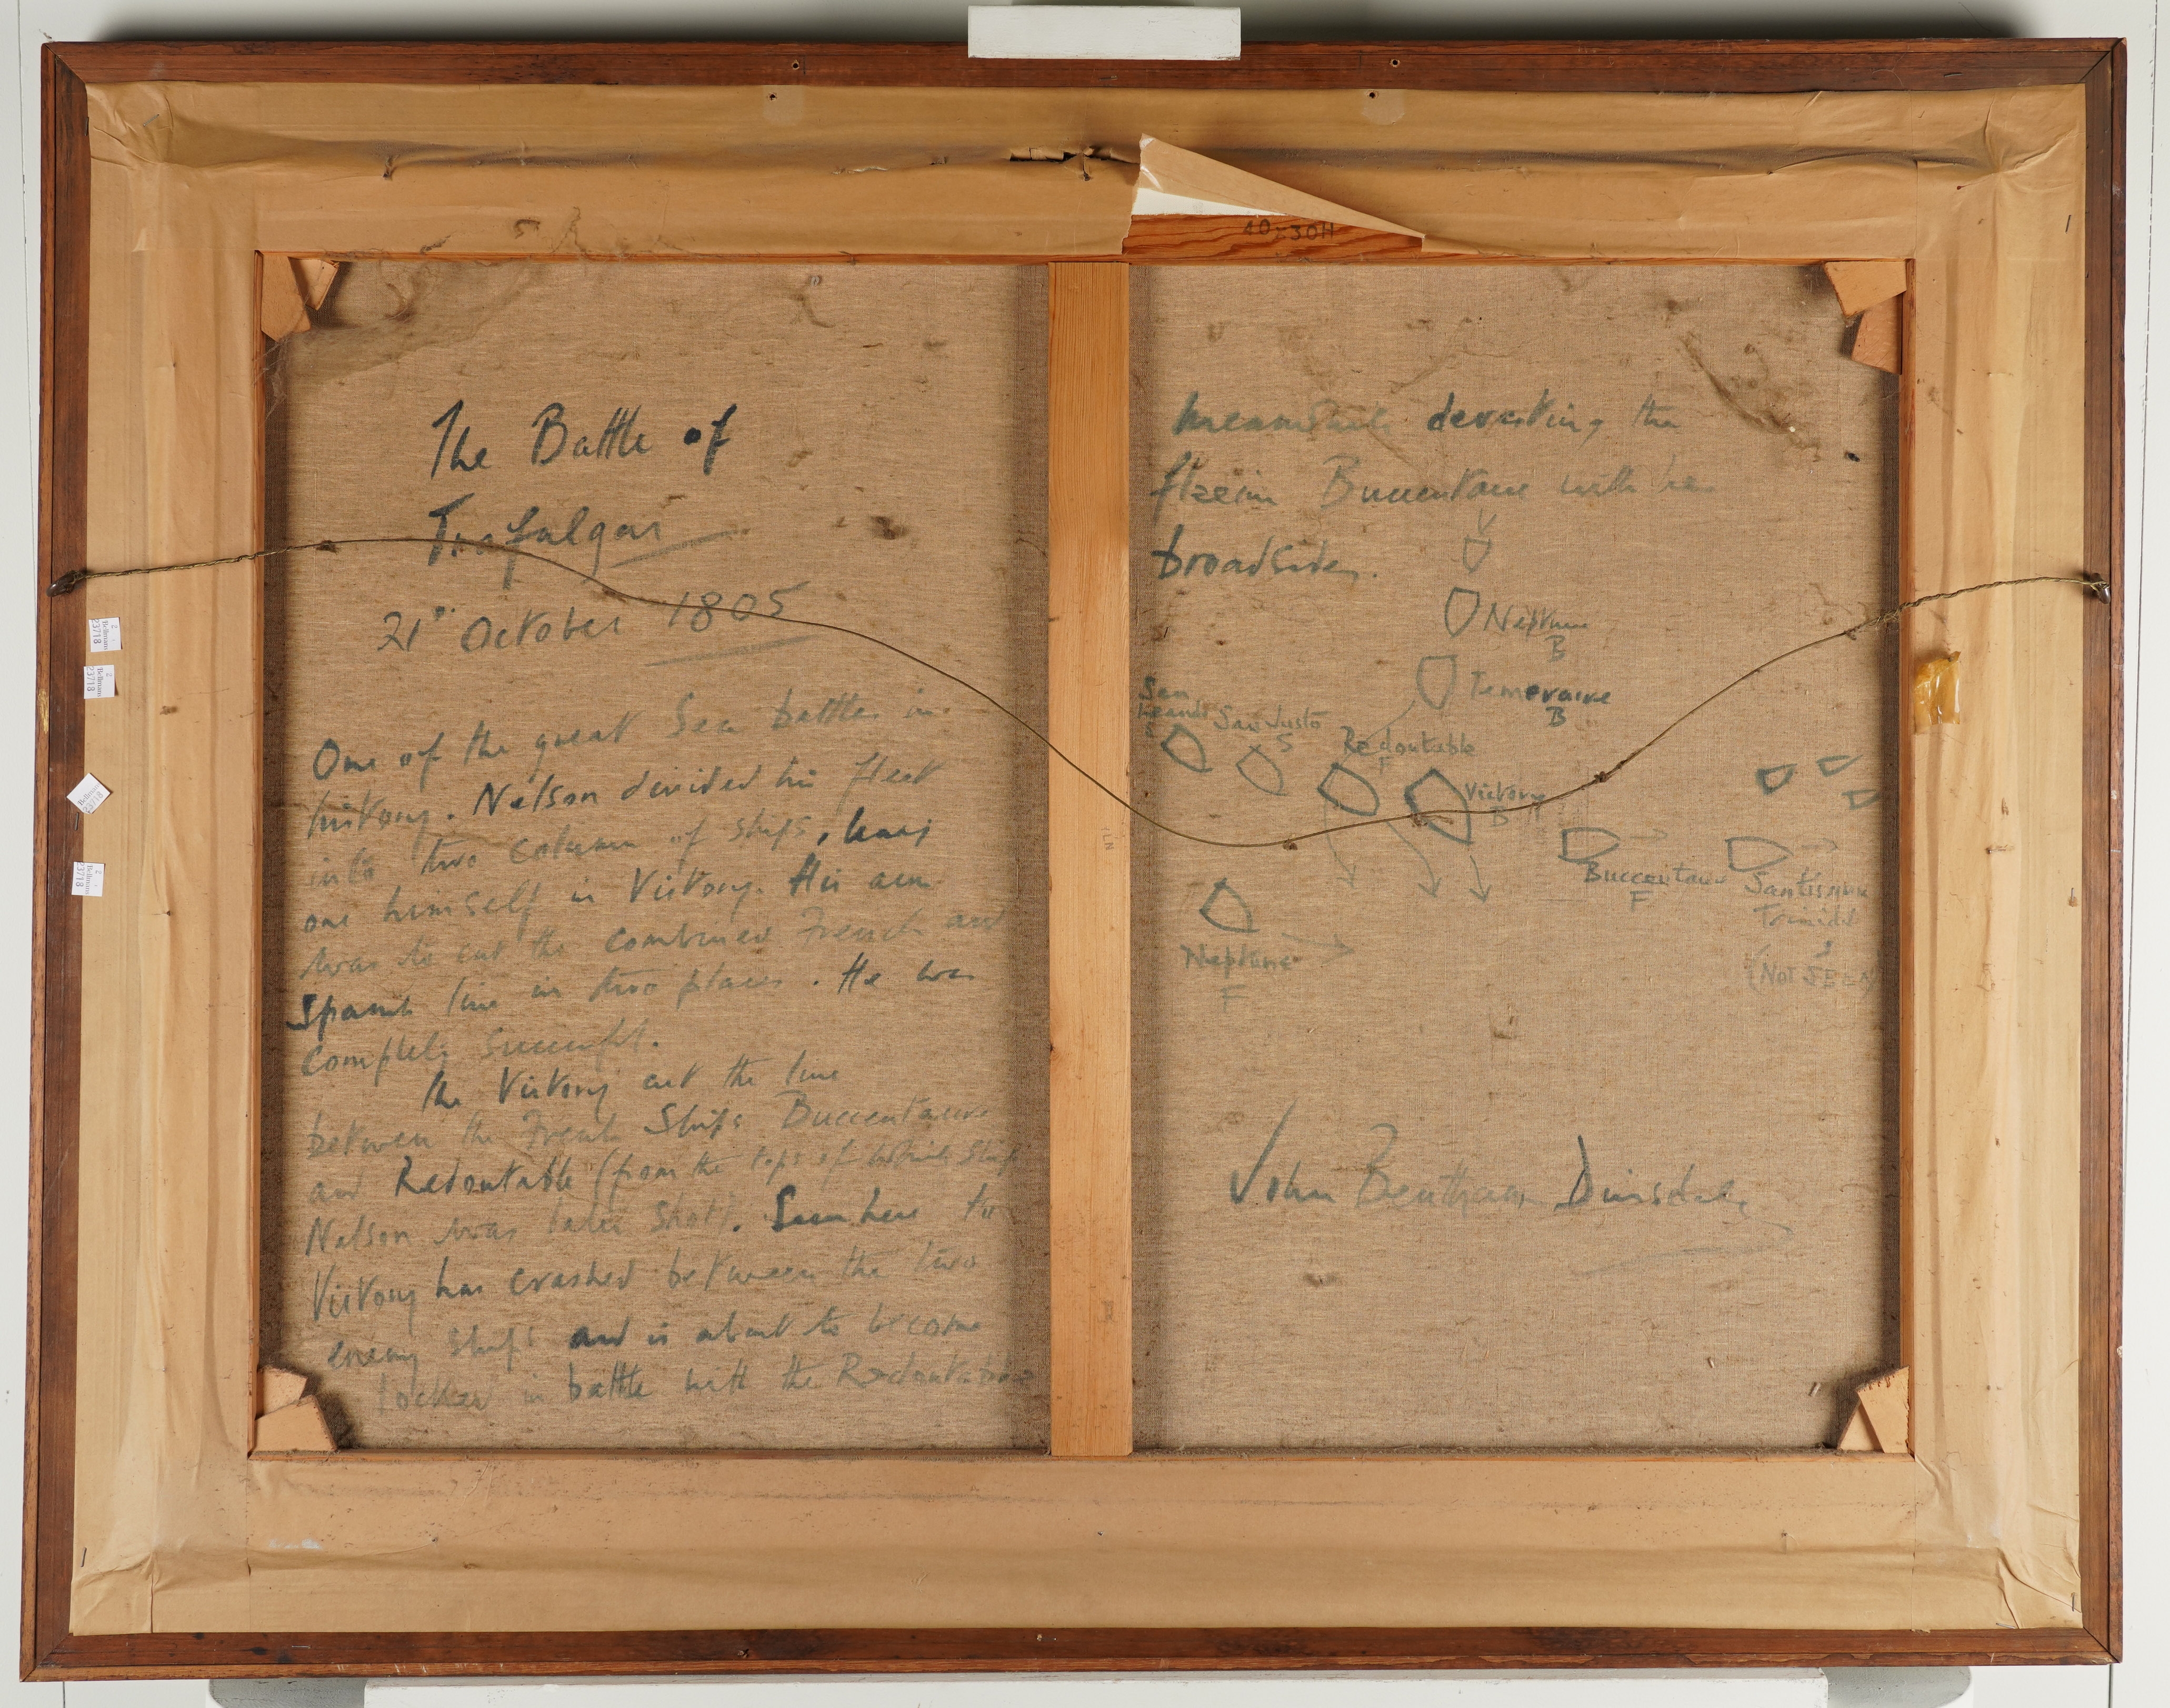 40x30H
The Battle of
Trafalgar
21st October 1805
One of the great Sea battles in
history. Nelson divided his fleet
into two column of ships,
one himself in Victory. His aim
was to cut the combined French and
Spanish line in two places. He was
completely successful.
The Victory cut the line
between the French Ships Bucentaure
and Redoutable (from the tops of which ship
Nelson was later shot). Seen here the
Victory has crashed between the two
enemy ships and is about to become
locked in battle with the Redoutable
meanwhile devasting the
Bucentaure with her
broadsides.
Neptune
B
Temeraire
B
San
Leandro
S
San Justo
S
Redoutable
F
Victory
B
Buccentaure
F
Santissima
Trinidad
S
(NOT SEEN)
Neptune
F
John Bentham Dinsdale
Bellmans
23718
Bellmans
23718
Bellmans
23718
Bellmans
23718